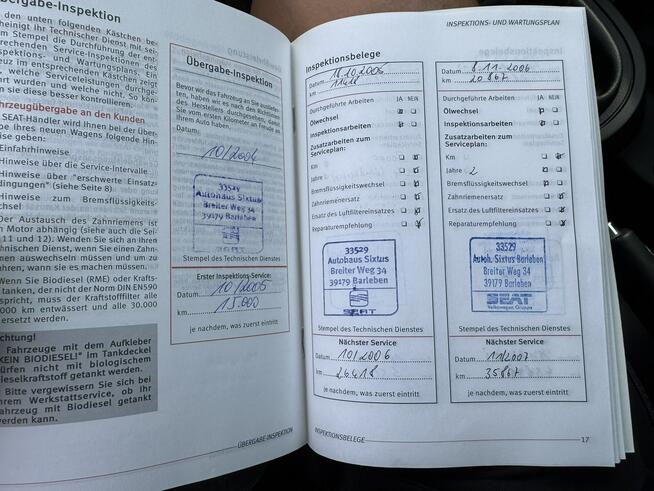 bergabe-Inspektion
den unten folgenden Kästchen be-
heinigt Ihr Technischer Dienst mit sei-
em Stempel die Durchführung der
prechenden Service-Inspektionen des
pektions- und Wartungsplans. Ein
euz im entsprechenden Kästchen zeigt
, welche Serviceleistungen durchge-
hrt wurden und welche nicht. So kön-
sie diese besser kontrollieren.
hrzeugübergabe an den Kunden
SEAT-Händler wird Ihnen bei der Über-
be Ihres neuen Wagens folgende Hin-
ise geben:
Einfahrhinweise
Hinweise über die Service-Intervalle
Hinweise über "erschwerte Einsatz-
dingungen" (siehe Seite 8)
Hinweise zum Bremsflüssigkeits-
chsel
Der Austausch des Zahnriemens ist
n Motor abhängig (siehe auch die Sei-
11 und 12). Wenden Sie sich an Ihren
chnischen Dienst, wenn Sie einen Zahn-
en auswechseln müssen und um zu
ahren, wann sie es machen müssen.
Wenn Sie Biodiesel (RME) oder Kraft-
tanken, der nicht der Norm DIN EN590
spricht, muss der Kraftstofffilter alle
000 km entwässert und alle 30.000
ersetzt werden.
chtung!
Fahrzeuge mit dem Aufkleber
KEIN BIODIESEL!" im Tankdeckel
ürfen nicht mit biologischem
ieselkraftstoff getankt werden.
Bitte vergewissern Sie sich bei
hrem Werkstattservice, ob Ihr
ahrzeug mit Biodiesel getankt
erden kann.
Übergabe-Inspektion
Bevor wir das Fahrzeug an Sie ausliefer-
ten, haben wir es nach den Richtlinien
des Herstellers durchgesehen, damit
Sie vom ersten Kilometer an Freude an
Ihrem Auto haben.
Datum
10/2004
33529
Autohaus Sixtus
Breiter Weg 34
39179 Barleben
SEAT
Stempel des Technischen Dienstes
Erster Inspektions-Service:
Datum 10/2005
km 15.000
je nachdem, was zuerst eintritt
ÜBERGABE-INSPEKTION
INSPEKTIONS- UND WARTUNGSPLAN
Inspektionsbelege
Datum 18.10.2005
km 11418
Durchgeführte Arbeiten JA NEIN
Ölwechsel
Inspektionsarbeiten
Zusatzarbeiten zum
Serviceplan:
Km
Jahre
Bremsflüssigkeitswechsel
Zahnriemenersatz
Ersatz des Luftfiltereinsatzes
Reparaturempfehlung
33529
Autohaus Sixtus
Breiter Weg 34
39179 Barleben
SEAT
Stempel des Technischen Dienstes
Nächster Service
Datum 10/2006
km 26418
je nachdem, was zuerst eintritt
Datum 8.11.2006
km 20867
Durchgeführte Arbeiten JA NEIN
Ölwechsel
Inspektionsarbeiten
Zusatzarbeiten zum
Serviceplan:
Km
Jahre 2
Bremsflüssigkeitswechsel
Zahnriemenersatz
Ersatz des Luftfiltereinsatzes
Reparaturempfehlung
33529
Autoh. Sixtus Barleben
Breiter Weg 34
39179 Barleben
SEAT
Volkswagen Gruppe
Stempel des Technischen Dienstes
Nächster Service
Datum 11/2007
km 35867
je nachdem, was zuerst eintritt
INSPEKTIONSBELEGE
17